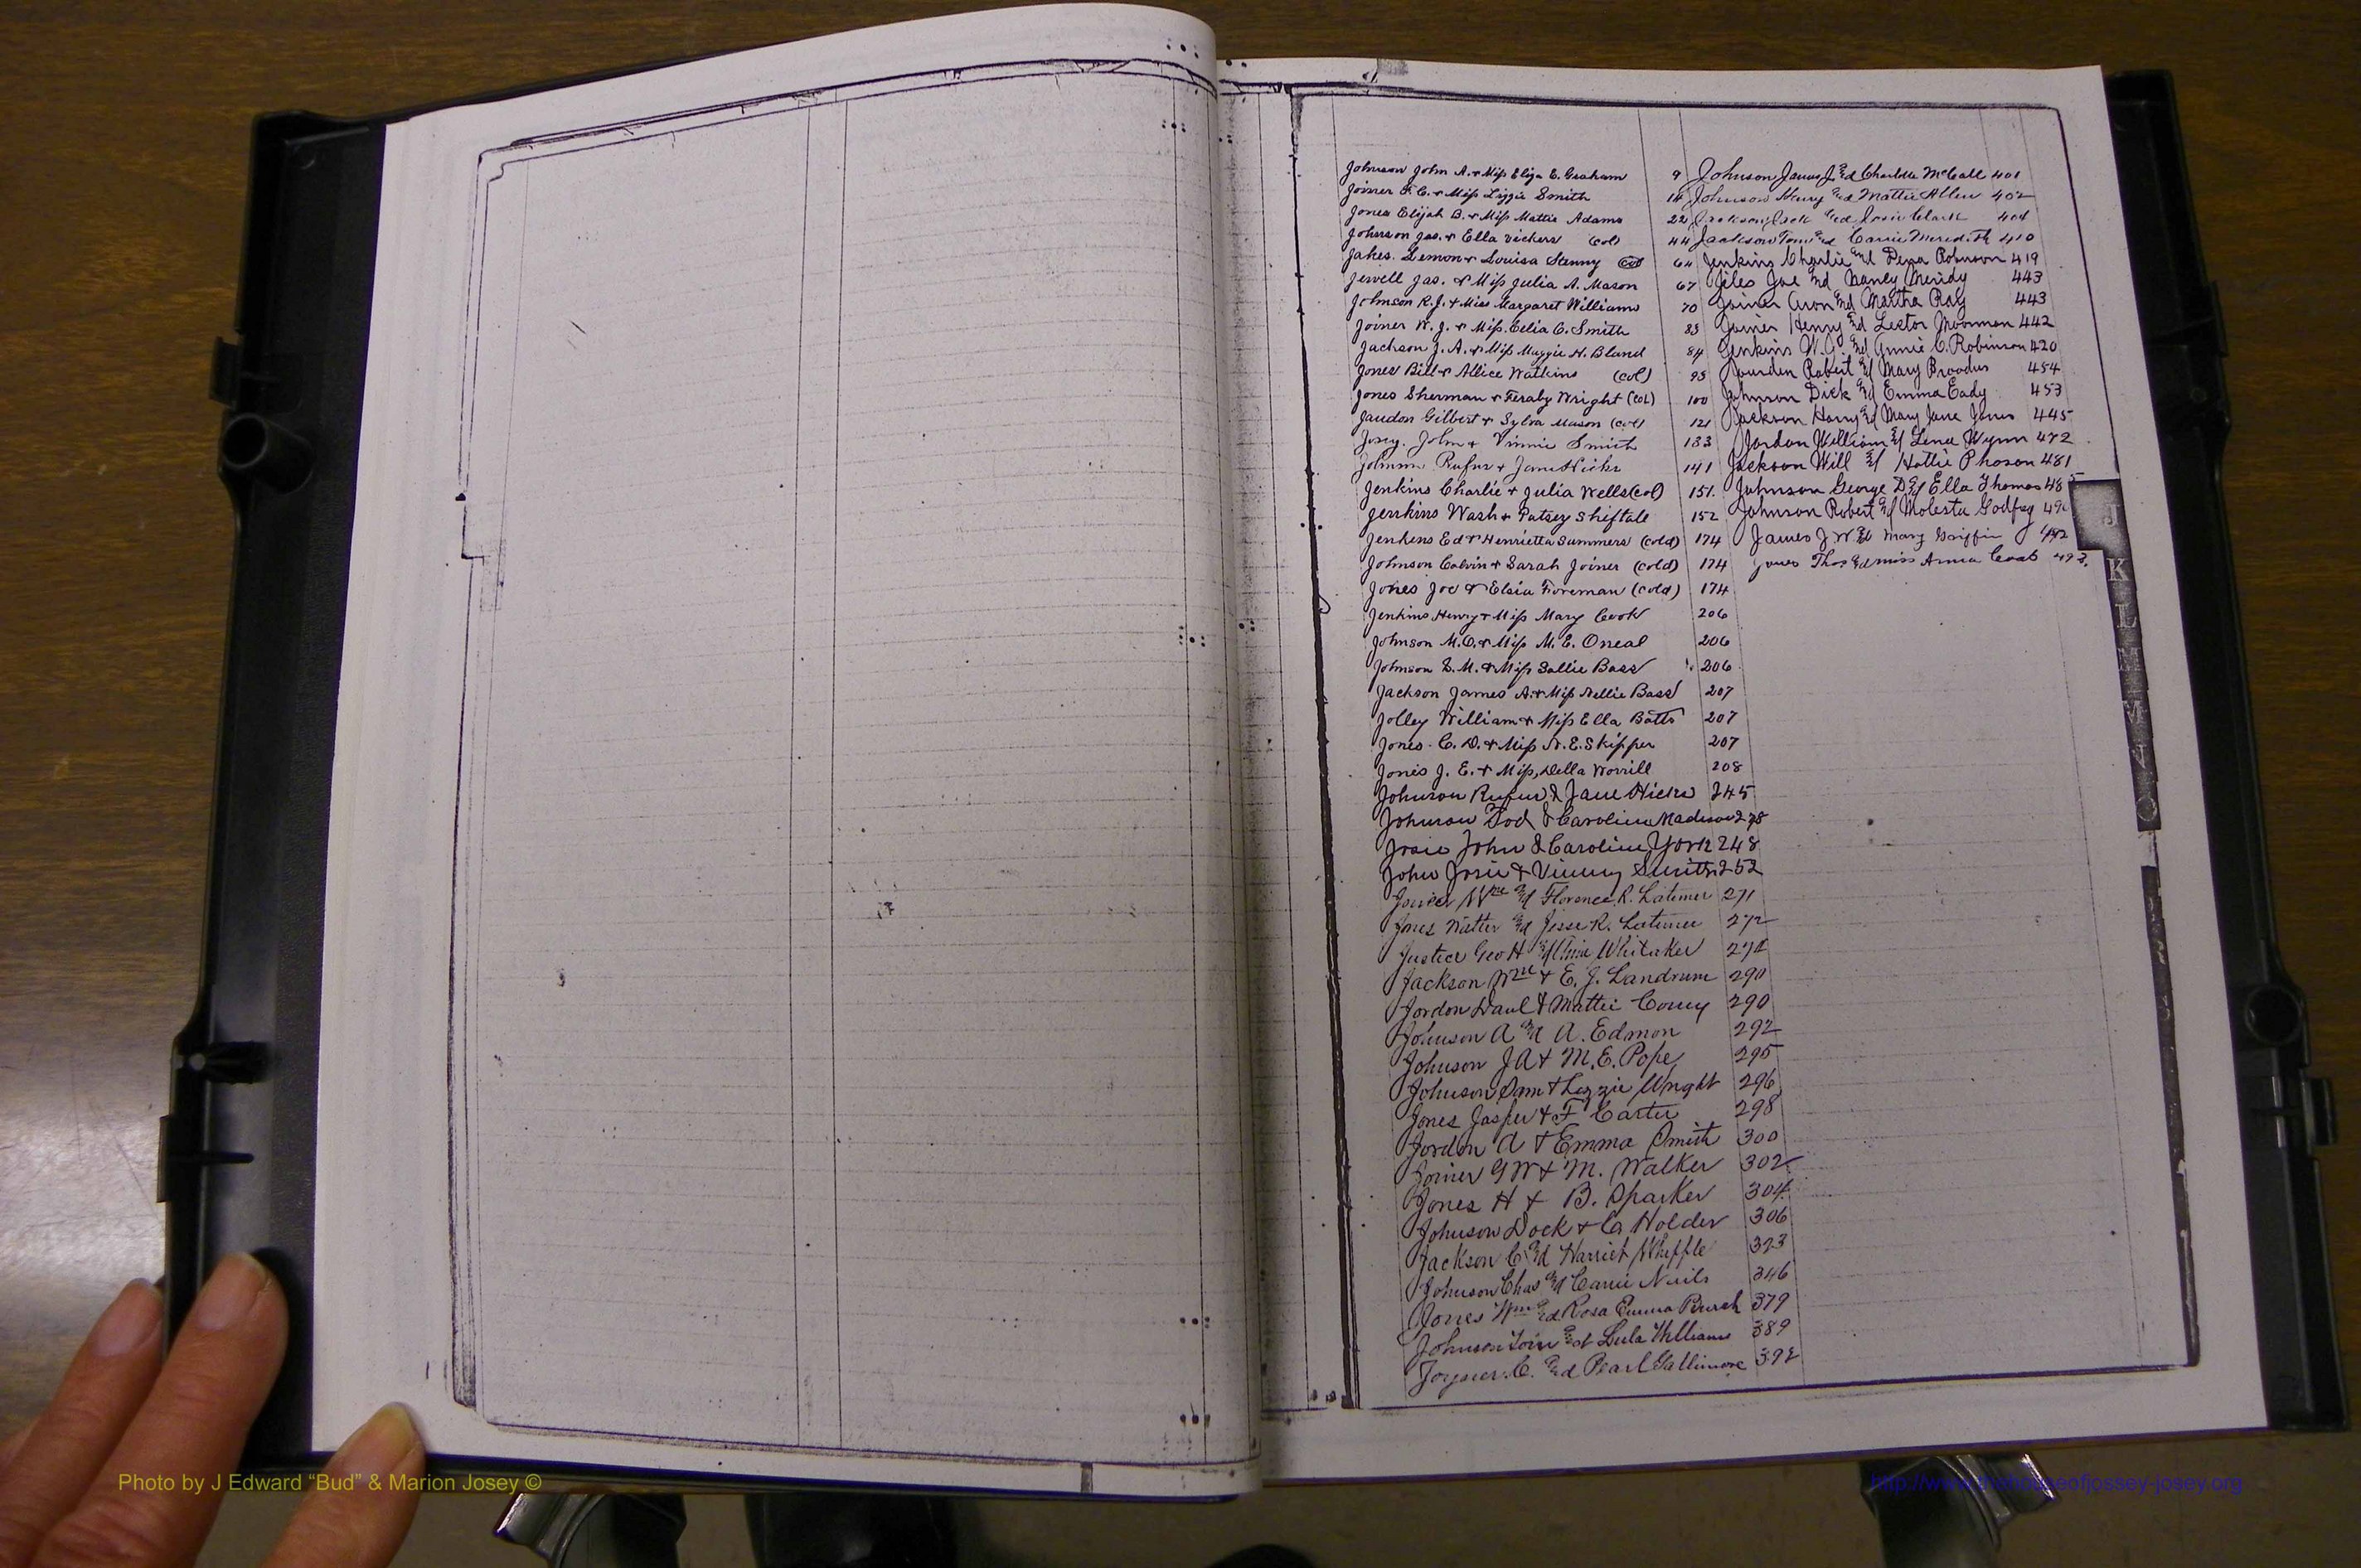 Johnson John A. & Miss Eliza E. Graham 9
Joiner F. C. & Miss Lizzie Smith 14
Jones Elijah B. & Miss Mattie Adams 22
Johnson Jas. & Ella Vickers (col) 44
Jakes. Lemon & Louisa Stenny (col) 64
Jewell Jas. & Miss Julia A. Mason 67
Johnson R. J. & Miss Margaret Williams 70
Joiner W. J. & Miss. Celia C. Smith 83
Jackson J. A. & Miss Maggie H. Bland 84
Jones Bill & Allice Watkins (col) 95
Jones Sherman & Feraby Wright (col) 100
Jaudon Gilbert & Sylva Mason (col) 121
Josey. John & Vinnie Smith 133
Johnson Rufus & Jane Hicks 141
Jenkins Charlie & Julia Wells (col) 151.
Jenkins Wash & Patsey Shiftale 152
Jenkins Ed & Henrietta Summers (cold) 174
Johnson Calvin & Sarah Joiner (cold) 174
Jones Joe & Elsia Foreman (cold) 174
Jenkins Henry & Miss Mary Cook 206
Johnson M. O. & Miss M. E. Oneal 206
Johnson D. M. & Miss Sallie Bass 206
Jackson James A. & Miss Nellie Bass 207
Jolley William & Miss Ella Batts 207
Jones. C. D. & Miss N. E. Skipper 207
Jones J. E. & Miss, Della Worrill 208
Johnson Rufus & Jane Hicks 245
Johnson Tod & Carolina Madison 278
Josie John & Caroline York 248
John Josie & Vinny Smith 252
Joiner Wm and Florence, R. Latimer 271
Jones Walter and Jesse R. Latimer 272
Justice Geo H and Whitaker 274
Jackson Wm & E. J. Landrum 290
Jordon Paul & Mattie 290
Johnson A and A. Edmon 292
Johnson J A & M. E. Pope 295
Johnson Sam & Lizzie Wright 296
Jones Jasper & F Carter 298
Jordon A & Emma Smith 300
Joiner G W & M. Walker 302
Jones H & B. Sparker 304
Johnson Dock & Ca Holder 306
Jackson C. and Harriet Whipple 323
Johnson Chas and Carrie Nails 346
Jones Wm and Rosa Emma Burch 379
Johnson Tom and Lula Williams 389
Joyner. C. and Pearl Gallimore 392
Johnson James J and Charlotte McCall 401
Johnson Henry and Mattie Allen 402
Jackson Jack and Josie Clark 404
Jackson Tom and Carrie Meredith 410
Jenkins Charlie and Dena Robinson 419
Jiles Joe and Nancy Mendy 443
Joiner Aron and Martha Ray 443
Joiner Henry and Lector Moorman 442
Jenkins W. J. and Annie C. Robinson 420
Jourden Robert and Mary Broadus 454
Johnson Dick and Emma Eady 453
Jackson Harry and Mary Jane Jones 445
Jordan William and Lena Wynn 472
Jackson Will and Hattie Phoson 481
Johnson George D and Ella Thomas 485
Johnson Robert and Molesta Godfrey 49
James J. W. and Mary Griffin 492
Jones Thos and miss Anna Coab 493.
J
K
L
M
M
N
O
Photo by J Edward “Bud” & Marion Josey ©
http://www.thehouseofjossey-josey.org